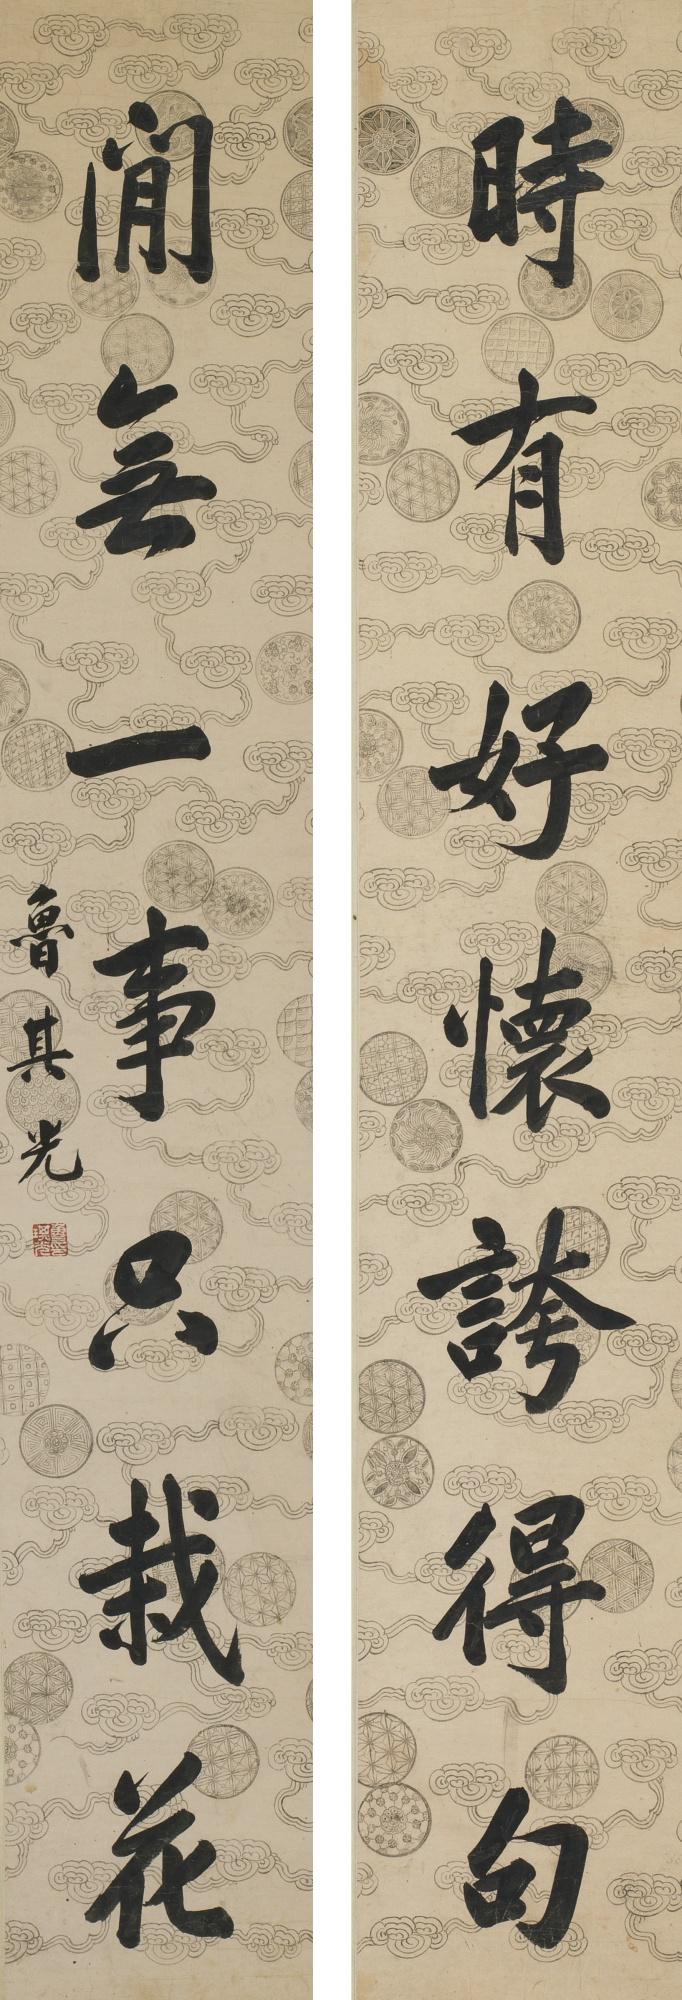 時有好懷誇得句
閒無一事只栽花
魯其光